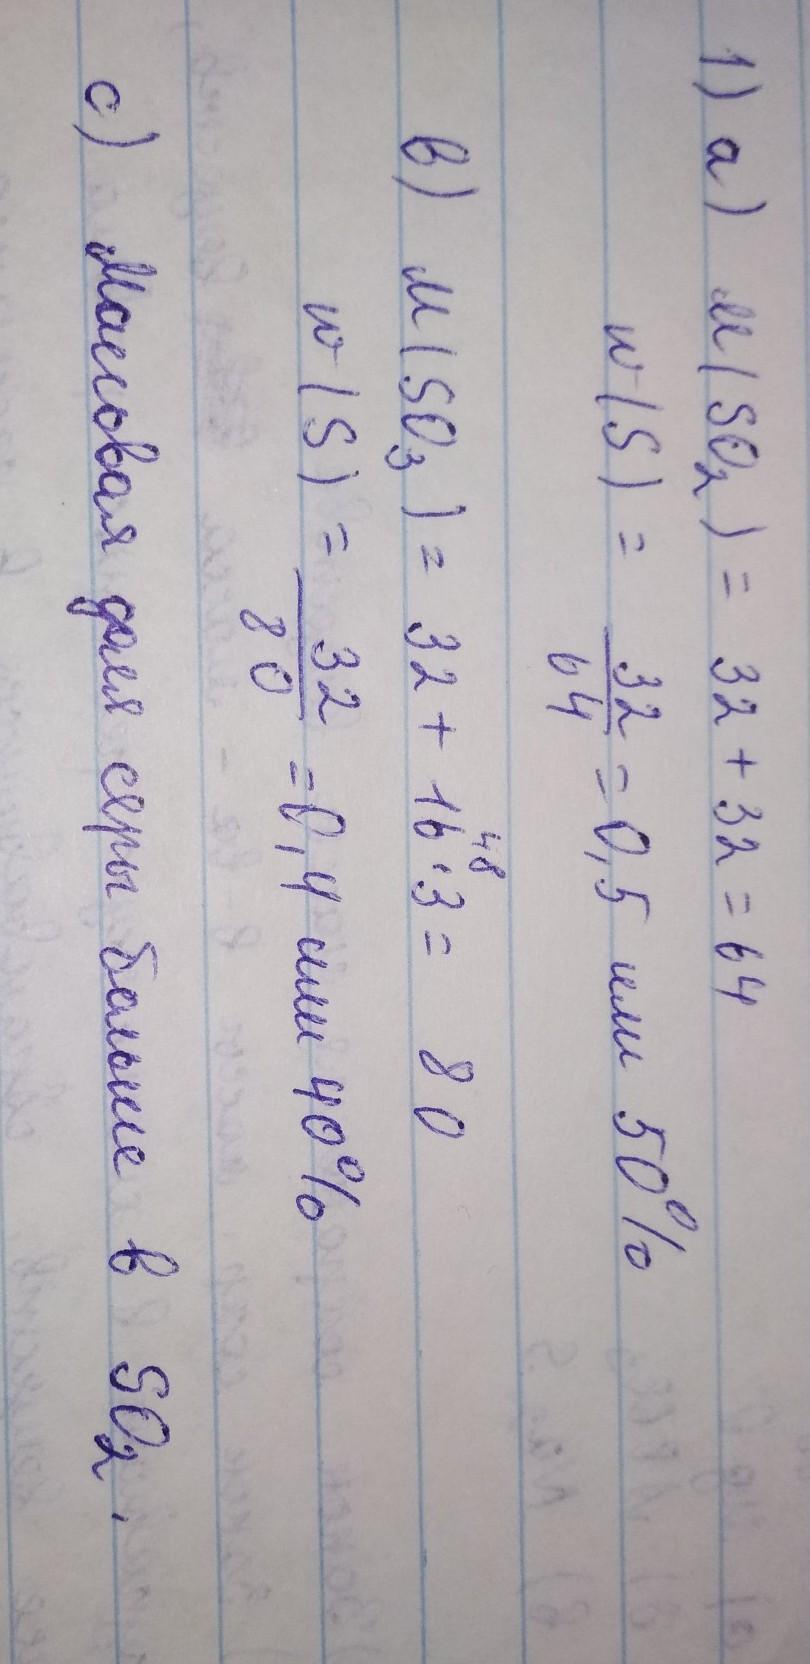 1) а) M(SO₂) = 32 + 32 = 64
w(S) = 32/64 = 0,5 или 50%
в) M(SO₃) = 32 + 16·3 = 80
48
w(S) = 32/80 = 0,4 или 40%
с) Массовая доля серы больше в SO₂.